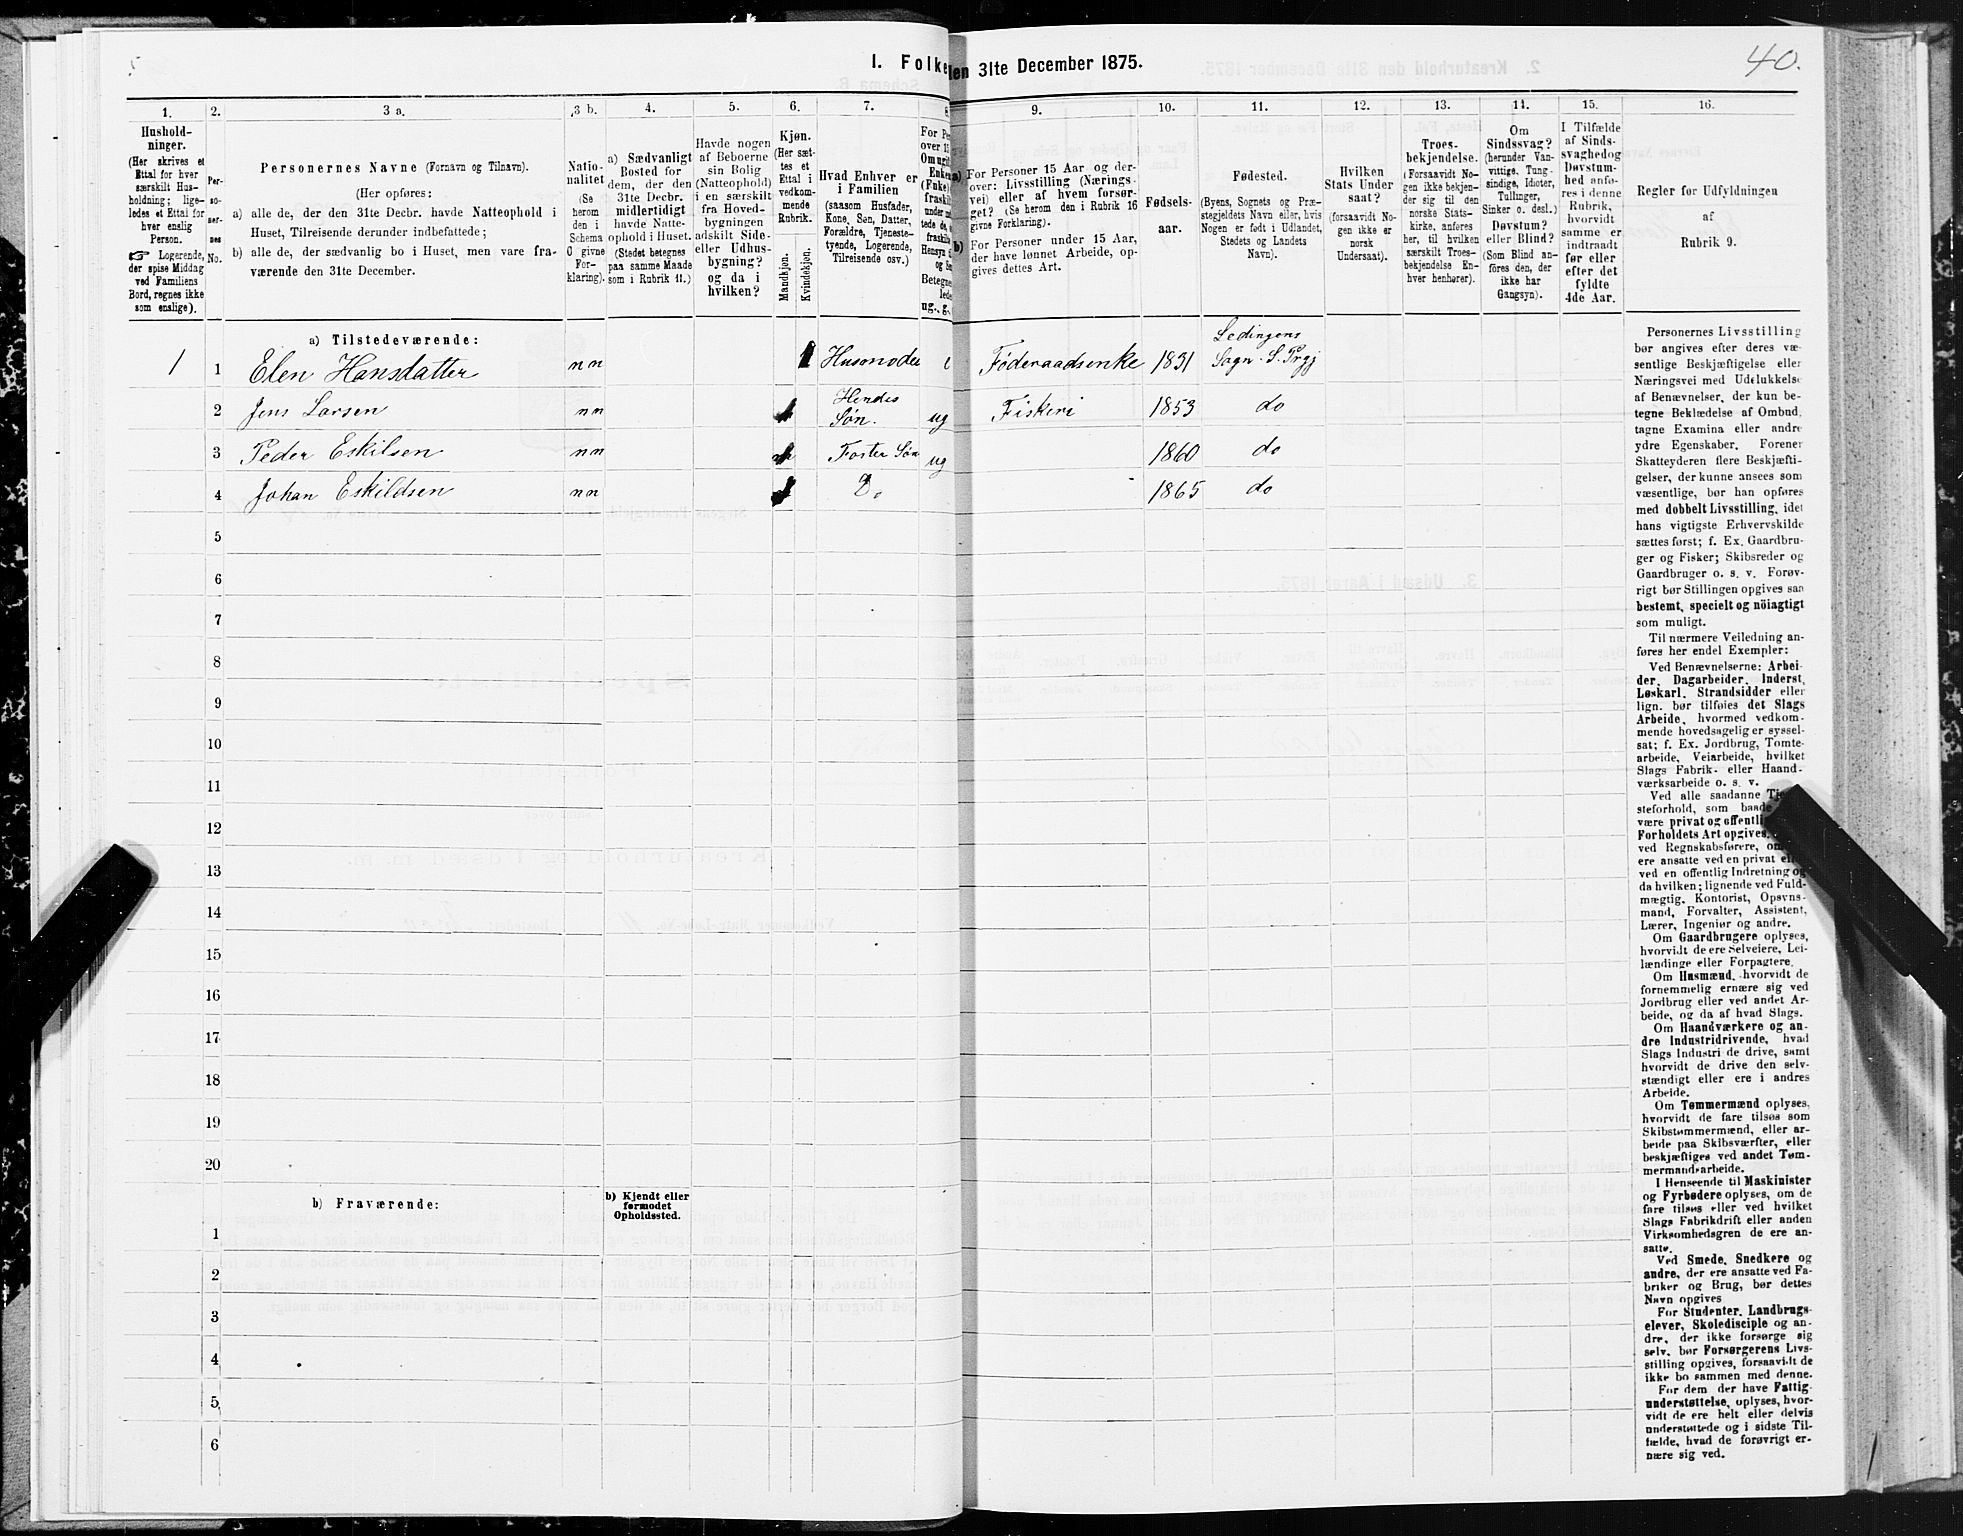 5
1. Folke
den 31te December 1875.
40.
1.
2.
3 a.
3 b.
4.
5.
6.
7.
8.
9.
10.
11.
12.
13.
14.
15.
16.
Hushold-
ninger.
(Her skrives et
Ettal for hver
særskilt Hus-
holdning; lige-
ledes et Ettal for
hver enslig
Person.
☞ Logerende,
der spise Middag
ved Familiens
Bord, regnes ikke
som enslige).
Per-
so-
ner-
nes
No.
Personernes Navne (Fornavn og Tilnavn).
(Her opføres:
a) alle de, der den 31te Decbr. havde Natteophold i
Huset, Tilreisende derunder indbefattede;
b) alle de, der sædvanlig bo i Huset, men vare fra-
værende den 31te December.
Natio-
nalitet
(Se
herom
den i
Schema
O givne
For-
klaring).
a) Sædvanligt
Bosted for
dem, der den
31te Decbr.
midlertidigt
havde Natte-
ophold i Huset.
(Stedet betegnes
paa samme Maade
som i Rubrik 11.)
Havde nogen
af Beboerne
sin Bolig
(Natteophold)
i en særskilt
fra Hoved-
bygningen
adskilt Side-
eller Udhus-
bygning?
og da i
hvilken?
Kjøn.
(Her sæt-
tes et
Ettal i
vedkom-
mende
Rubrik.
Mandkjøn.
Kvindekjøn.
Hvad Enhver er
i Familien
(saasom Husfader,
Kone, Søn, Datter,
Forældre, Tjeneste-
tyende, Logerende,
Tilreisende osv.)
For Per
over 15
Om ugift
Enken
(Fuke)
fraskilt
under
tede de,
fraskil
Hensyn t
og
Betegne
lede
ug., g.,
a) For Personer 15 Aar og der-
over: Livsstilling (Nærings-
vei) eller af hvem forsør-
get? (Se herom den i Rubrik 16
givne Forklaring).
b) For Personer under 15 Aar,
der have lønnet Arbeide, op-
gives dettes Art.
Fødsels-
aar.
Fødested.
(Byens, Sognets og Præ-
stegjeldets Navn eller, hvis
Nogen er født i Udlandet,
Stedets og Landets
Navn).
Hvilken
Stats Under
saat?
(forsaavidt No-
gen ikke er
norsk
Undersaat).
Troes-
bekjendelse.
(Forsaavidt No-
gen ikke bekjen-
der sig til den
norske Stats-
kirke, anføres
her, til hvilken
særskilt Troes-
bekjendelse En-
hver henhører).
Om
Sindssvag?
(herunder Van-
vittige, Tung-
sindige, Idioter,
Tullinger,
Sinker o. desl.)
Døvstum?
eller Blind?
(Som Blind an-
føres den, der
ikke har
Gangsyn).
I Tilfælde
af Sinds-
svaghed og
Døvstum-
hed anfø-
res i denne
Rubrik,
hvorvidt
samme er
indtraadt
før eller
efter det
fyldte
4de Aar.
Regler for Udfyldningen
af
Rubrik 9.
a) Tilstedeværende:
1 1 Elen Hansdatter nn 1 Husmoder e Føderaadsenke 1831 Lødingens Sogn. S. Prgj
2 Jens Larsen nn 1 Hendes Søn. ug Fiskeri 1853 do
3 Peder Eskilsen nn 1 Foster Søn ug 1860 do
4 Johan Eskildsen nn 1 Do 1865 do
5
6
7
8
9
10
11
12
13
14
15
16
17
18
19
20
b) Fraværende:
b) Kjendt eller
formodet
Opholdssted.
1
2
3
4
5
6
Personernes Livsstilling
bør angives efter deres væ-
sentlige Beskjæftigelse eller
Næringsvei med Udelukkelse
af Benævnelser, der kun be-
tegne Beklædelse af Ombud,
tagne Examina eller andre
ydre Egenskaber. Forener
Skatteyderen flere Beskjæfti-
gelser, der kunne ansees som
væsentlige, bør han opføres
med dobbelt Livsstilling, idet
hans vigtigste Erhvervskilde
sættes først; f. Ex. Gaardbru-
ger og Fisker; Skibsreder og
Gaardbruger o. s. v. Forøv-
rigt bør Stillingen opgives saa
bestemt, specielt og nöiagtigt
som muligt.
Til nærmere Veiledning an-
føres her endel Exempler:
Ved Benævnelserne: Arbei-
der, Dagarbeider, Inderst,
Løskarl, Strandsidder eller
lign. bør tilføies det Slags
Arbeide, hvormed vedkom-
mende hovedsagelig er syssel-
sat; f. Ex. Jordbrug, Tomte-
arbeide, Veiarbeide, hvilket
Slags Fabrik- eller Haand-
værksarbeide o. s. v.
Ved alle saadanne Tje
steforhold, som baade
være privat og offentli
Forholdets Art opgives,
ved Regnskabsførere, om
ere ansatte ved en privat el
ved en offentlig Indretning og
da hvilken; lignende ved Fuld-
mægtig, Kontorist, Opsyns-
mand, Forvalter, Assistent,
Lærer, Ingeniør og andre.
Om Gaardbrugere oplyses,
hvorvidt de ere Selveiere, Lei-
lændinge eller Forpagtere.
Om Husmænd, hvorvidt de
fornemmelig ernære sig ved
Jordbrug eller ved andet Ar-
beide, og da af hvad Slags.
Om Haandværkere og an-
dre Industridrivende, hvad
Slags Industri de drive, samt
hvorvidt de drive den selv-
stændigt eller ere i andres
Arbeide.
Om Tømmermænd oplyses,
hvorvidt de fare tilsøs som
Skibstømmermænd, eller ar-
beide paa Skibsværfter, eller
beskjæftiges ved andet Tøm-
mermandsarbeide.
I Henseende til Maskinister
og Fyrbødere oplyses, om de
fare tilsøs eller ved hvilket
Slags Fabrikdrift eller anden
Virksomhedsgren de ere an-
satte.
Ved Smede, Snedkere og
andre, der ere ansatte ved Fa-
briker og Brug, bør dettes
Navn opgives
For Studenter, Landbrugs-
elever, Skoledisciple og an-
dre, der ikke forsørge sig
selv, bør Forsørgerens Livs-
stilling opgives, forsaavidt de
ikke bo sammen med denne.
For dem der have Fattig-
understøttelse, oplyses, hvor-
vidt de ere helt eller delvis
understøttede og i sidste Til-
fælde, hvad de forøvrigt er-
nære sig ved.